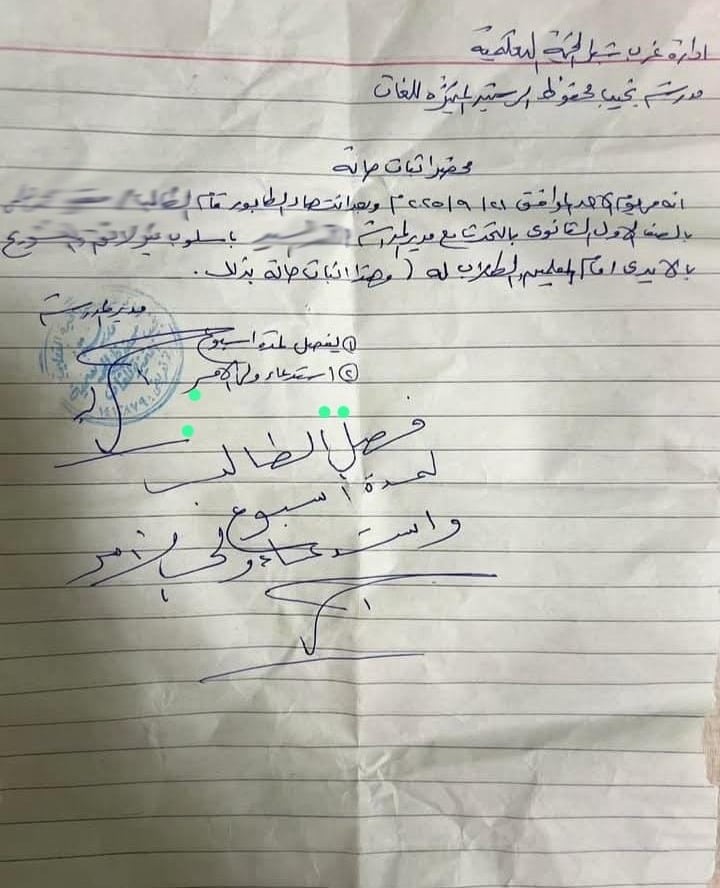 ادارة غرب شبرا الخيمة التعليمية
مدرسة نجيب محفوظ الرسمية المتميزة للغات
محضر اثبات حالة
انه فى يوم الاحد الموافق ٢١ / ٩ / ٢٠٢٥م وبعد انتصاف الطابور قام الطالب/
بالصف الاول الثانوى بالتحدث مع مدير المدرسة باسلوب غير لائق
بالايدى امام المعلمين والطلاب له ( وهذا اثبات حالة بذلك .
مدير المدرسة
١) يفصل لمدة اسبوع
٢) استدعاء ولى الامر
فصل الطالب
لمدة أسبوع
واستدعاء ولى الأمر